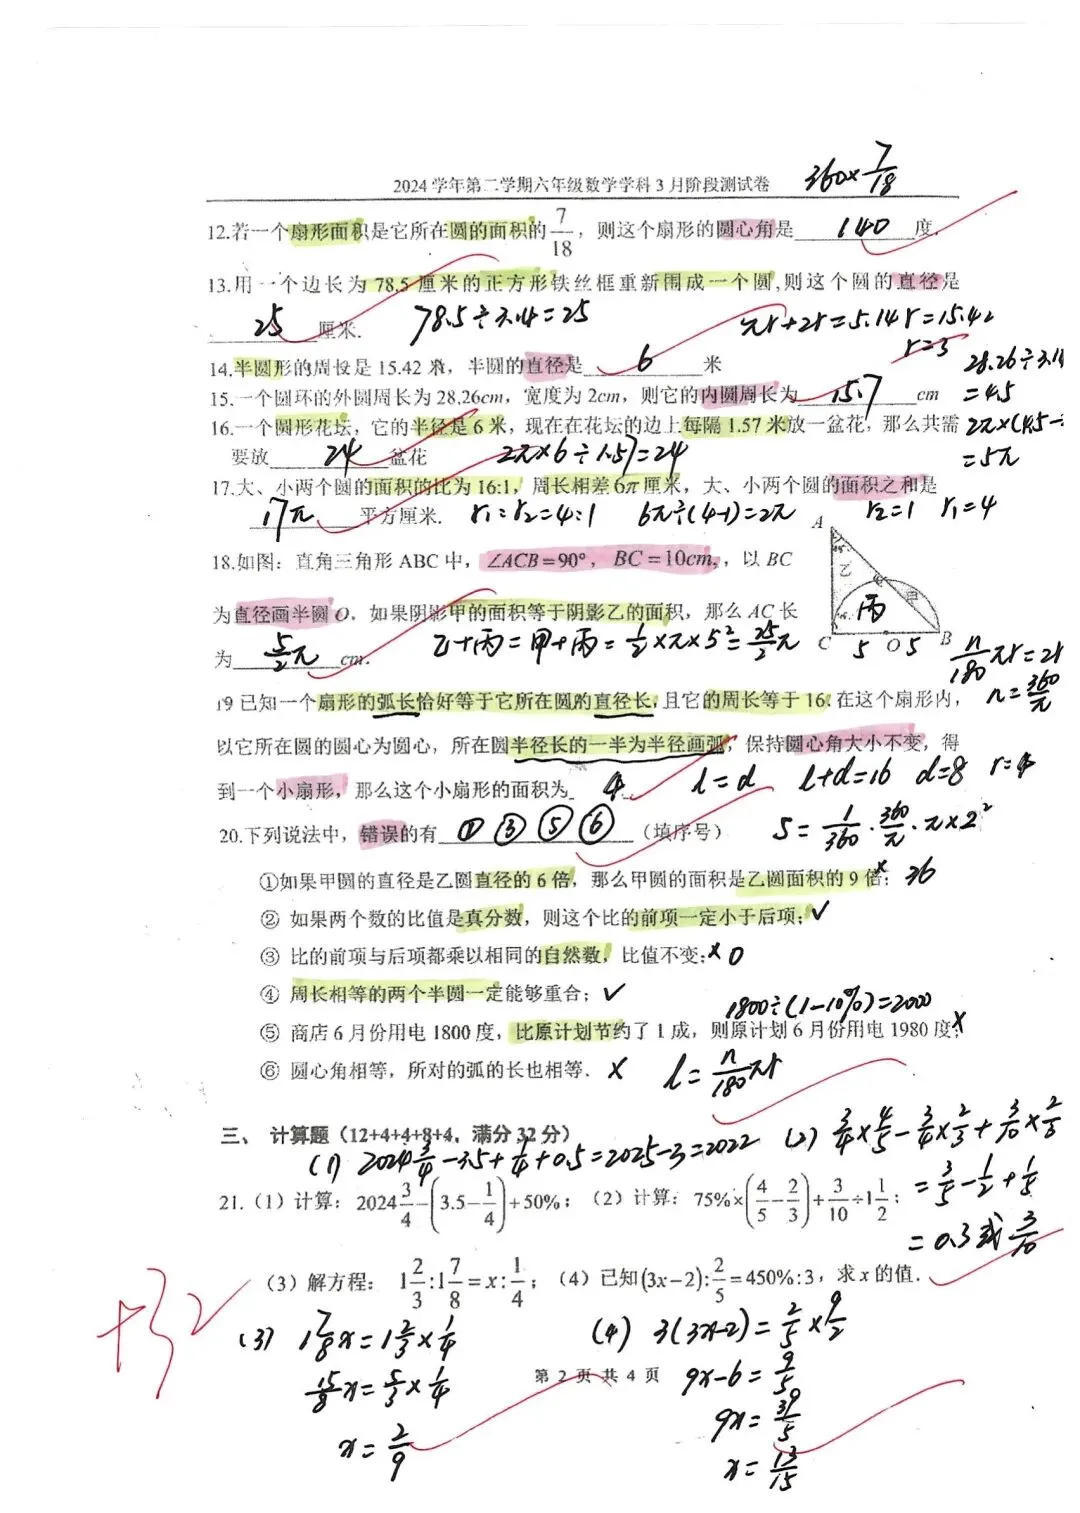 2024 学年第二学期六年级数学学科 3 月阶段测试卷
360×7/18
12.若一个扇形面积是它所在圆的面积的 7/18，则这个扇形的圆心角是 140 度.
13.用一个边长为 78.5 厘米的正方形铁丝框重新围成一个圆,则这个圆的直径是
25 厘米. 78.5÷3.14=25
πr+2r=5.14r=15.42
r=3
14.半圆形的周长是 15.42 米，半圆的直径是 6 米
28.26÷3.14
15.一个圆环的外圆周长为 28.26cm，宽度为 2cm，则它的内圆周长为 15.7 cm
=4.5
16.一个圆形花坛，它的半径是 6 米，现在在花坛的边上每隔 1.57 米放一盆花，那么共需
2π×(4.5-
要放 24 盆花 2π×6÷1.57=24
=5π
17.大、小两个圆的面积的比为 16:1，周长相差 6π 厘米，大、小两个圆的面积之和是
17π 平方厘米. r₁=r₂=4:1 6π÷(4-1)=2π r₂=1 r₁=4
18.如图：直角三角形 ABC 中，∠ACB=90°，BC=10cm,，以 BC
为直径画半圆 O，如果阴影甲的面积等于阴影乙的面积，那么 AC 长
为 5/2π cm. 乙+丙=甲+丙=1/2×π×5²=25/2π
A
乙
甲
丙
C 5 O 5 B
n/180 πr=2r
n=360/π
19 已知一个扇形的弧长恰好等于它所在圆的直径长，且它的周长等于 16. 在这个扇形内，
以它所在圆的圆心为圆心，所在圆半径长的一半为半径画弧，保持圆心角大小不变，得
到一个小扇形，那么这个小扇形的面积为 4 l=d l+d=16 d=8 r=4
S=1/360·360/π·π×2²
20.下列说法中，错误的有 ①③⑤⑥ （填序号）
①如果甲圆的直径是乙圆直径的 6 倍，那么甲圆的面积是乙圆面积的 9 倍； × 36
② 如果两个数的比值是真分数，则这个比的前项一定小于后项；✓
③ 比的前项与后项都乘以相同的自然数，比值不变；× 0
④ 周长相等的两个半圆一定能够重合；✓
1800÷(1-10%)=2000
⑤ 商店 6 月份用电 1800 度，比原计划节约了 1 成，则原计划 6 月份用电 1980 度；×
⑥ 圆心角相等，所对的弧的长也相等. × l=n/180 πr
三、 计算题（12+4+4+8+4，满分 32 分）
(1) 2024 3/4 -3.5+1/4+0.5=2025-3=2022 (2) 3/4×4/5-3/4×2/3+3/10×2/3
=3/5-1/2+1/5
=0.3或3/10
21.（1）计算：2024 3/4-(3.5-1/4)+50%；（2）计算：75%×(4/5-2/3)+3/10÷1 1/2；
（3）解方程：1 2/3:1 7/8=x:1/4；（4）已知(3x-2):2/5=450%:3，求 x 的值.
+32
(3) 1 7/8 x=1 2/3×1/4
15/8 x=5/3×1/4
x=2/9
(4) 3(3x-2)=2/5×9/2
9x-6=9/5
9x=39/5
x=13/15
第 2 页 共 4 页